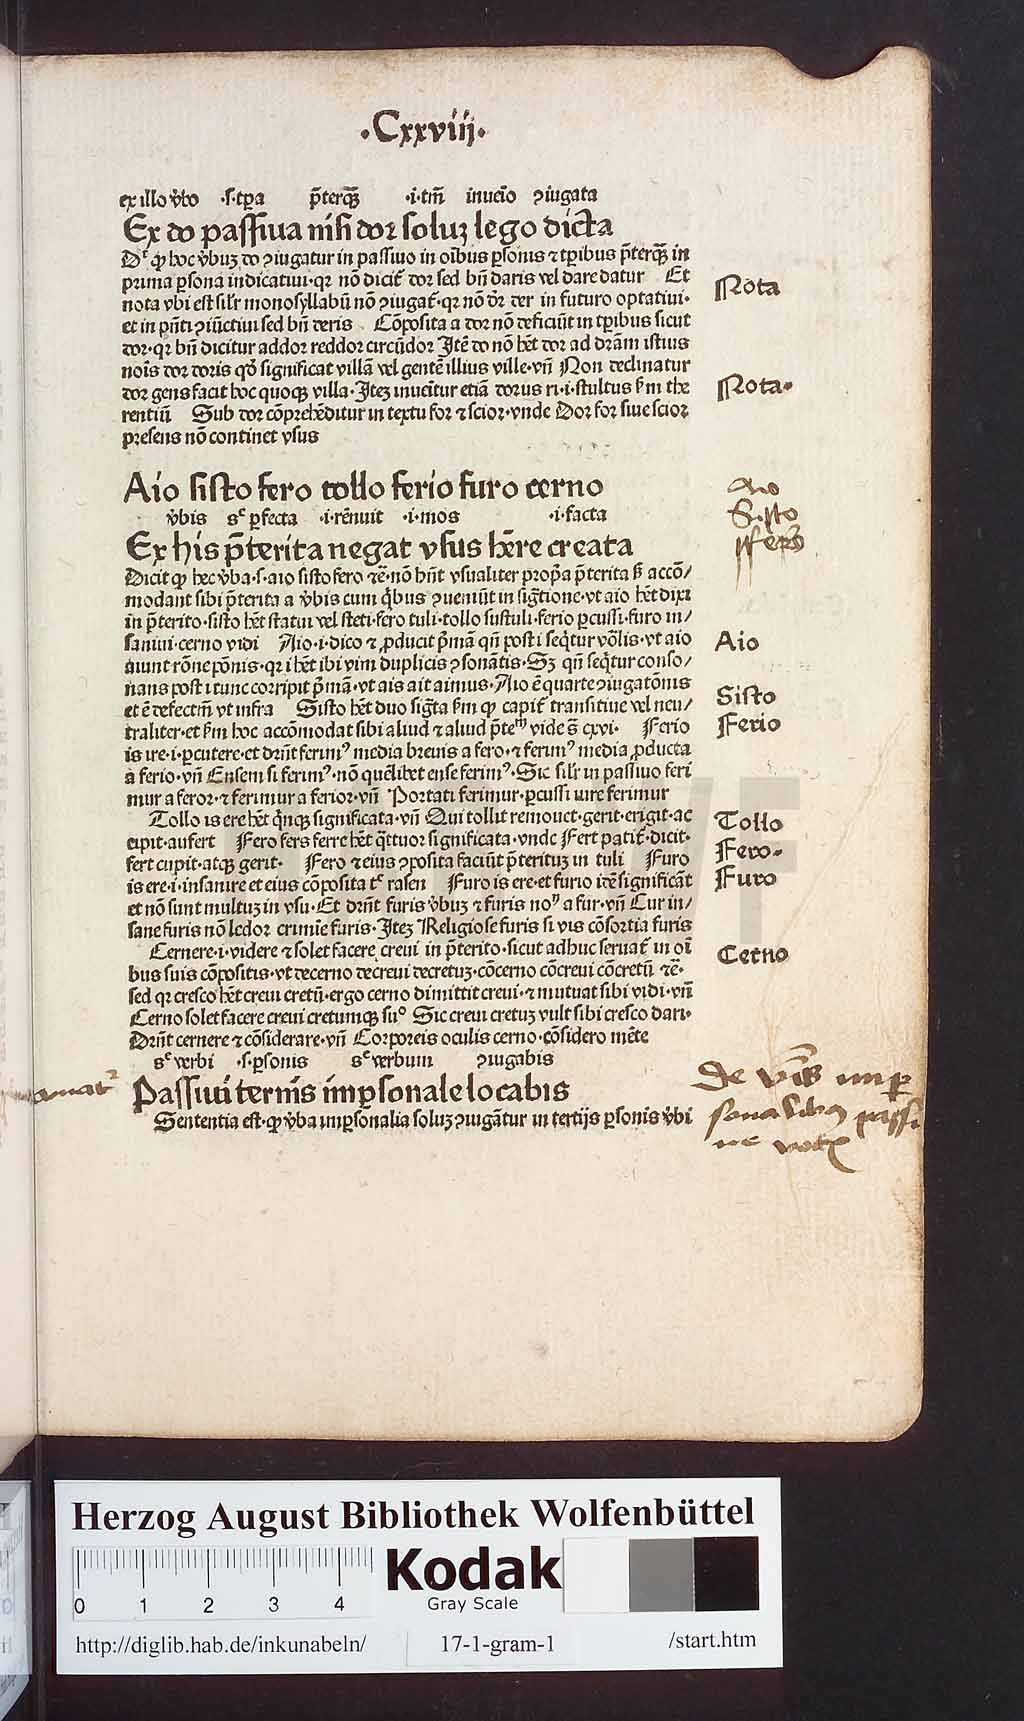 ·Cxxviij·
ex illo v̓bo ·s·tpa p̄terqȝ ·i·tm̄ inueīo ꝯiugata
Ex do passiua nisi dor soluȝ lego dicta
Dr̄ ꝙ hoc v̓buȝ do ꝯiugatur in passiuo in oībus ꝑsonis ⁊ tꝑibus p̄terqȝ in
prima ꝑsona indicatiui·qꝛ nō dicit᷑ dor sed bn̄ daris vel dare datur Et
nota vbi est sil̓r monosyllabū nō ꝯiugat᷑·qꝛ nō dr̄ der in futuro optatiui·
et in pn̄ti ꝯiūctiui sed bn̄ deris Cōposita a dor nō deficiūt in tꝑibus sicut
dor·qꝛ bn̄ dicitur addor reddor circūdor Itē do nō hēt dor ad dr̄am istius
nōis dor doris qd̓ significat villā vel gentē illius ville·vn̄ Non declinatur
dor gens facit hoc quoqȝ villa·Iteȝ inueītur etiā dorus ri·i·stultus ẜm the
rentiū Sub dor cōprehēditur in textu for ⁊ scior·vnde Dor for siue scior
presens nō continet vsus
Nota
Nota·
Aio sisto fero tollo ferio furo cerno
v̓bis sᶜ ꝑfecta ·i·rēnuit ·i·mos ·i·facta
Ex his p̄terita negat vsus hr̄e creata
Dicit ꝙ hec v̓ba·s·aio sisto fero ⁊c̄·nō hn̄t vsualiter ꝓpͥa p̄terita ẜ accō/
modant sibi p̄terita a v̓bis cum qͥbus ꝯueniūt in sig̃tione·vt aio hēt dixi
in p̄terito·sisto hēt statui vel steti·fero tuli·tollo sustuli·ferio ꝑcussi·furo in/
saniui·cerno vidi Aio·i·dico ⁊ ꝓducit pͥmā qn̄ post i seqͥtur vōlis·vt aio
aiunt rōne ꝑōnis·qꝛ i hēt ibi vim duplicis ꝯsonātis·Sȝ qn̄ seqͥtur conso/
nans post i tunc corripit pͥmā·vt ais ait aimus·Aio ē quarte ꝯiugatōnis
et ē defectiū vt infra Sisto hēt duo sig̃ta ẜm ꝙ capit᷑ transitiue vel neu/
traliter·et ẜm hoc accōmodat sibi aliud ⁊ aliud p̄teᵐ vide s̄ cxvi· Ferio
is ire·i·ꝑcutere·et dr̄nt ferimꝰ media breuis a fero·⁊ ferimꝰ media ꝓducta
a ferio·vn̄ Ensem si ferimꝰ·nō quēlibet ense ferimꝰ·Sic sil̓r in passiuo feri
mur a feror·⁊ ferimur a ferior·vn̄ Portati ferimur·ꝑcussi iure ferimur
Tollo is ere hēt qͥnqȝ significata·vn̄ Qui tollit remouet·gerit·erigit·ac
cipit·aufert Fero fers ferre hēt qͣttuor significata·vnde Fert patit᷑·dicit·
fert cupit·atqȝ gerit· Fero ⁊ eius ꝯposita faciūt p̄terituȝ in tuli Furo
is ere·i·insanire et eius cōposita tᶜ rasen Furo is ere·et furio itē significāt
et nō sunt multuȝ in vsu·Et dr̄nt furis v̓buȝ ⁊ furis noᵐ a fur·vn̄ Cur in/
sane furis nō ledor crimīe furis·Iteȝ Religiose furis si vis cōsortia furis
Cernere·i·videre ⁊ solet facere creui in p̄terito·sicut adhuc seruat᷑ in oī
bus suis cōpositis·vt decerno decreui decretuȝ·cōcerno cōcreui cōcretū ⁊c̄·
sed qꝛ cresco hēt creui cretū·ergo cerno dimittit creui·⁊ mutuat sibi vidi·vn̄
Cerno solet facere creui cretumqȝ suᵒ Sic creui cretuȝ vult sibi cresco dari·
Dr̄nt cernere ⁊ cōsiderare·vn̄ Corporeis oculis cerno·cōsidero mēte
sᶜ verbi ·s·ꝑsonis sᶜ verbum ꝯiugabis
Passiui termīs imꝑsonale locabis
Sententia est·ꝙ v̓ba imꝑsonalia soluȝ ꝯiugātur in tertijs ꝑsonis v̓bi
Aio
Sisto
ffero
Aio
Sisto
Ferio
Tollo
Fero·
Furo
Cerno
amat᷑
de v̄bis imꝑ
sonalibus passi
ue voc
Herzog August Bibliothek Wolfenbüttel
Kodak
Gray Scale
0 1 2 3 4
http://diglib.hab.de/inkunabeln/ 17-1-gram-1 /start.htm